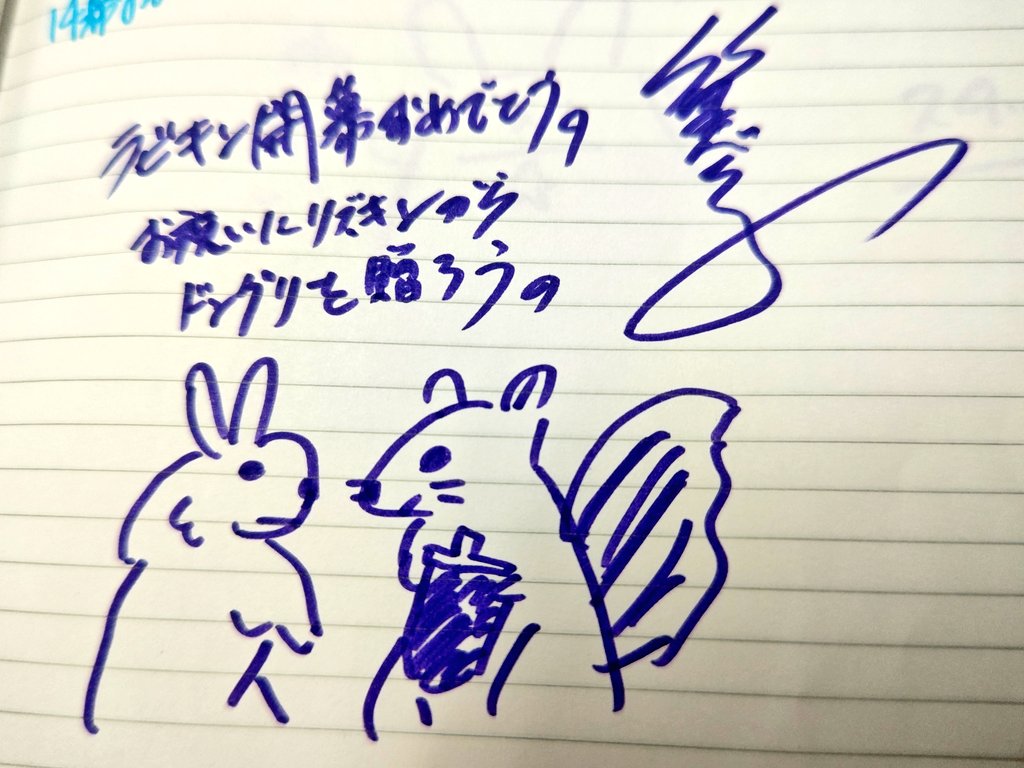 ラビキン開幕おめでとう。
お祝いにリズキンから
ドングリを贈ろう。